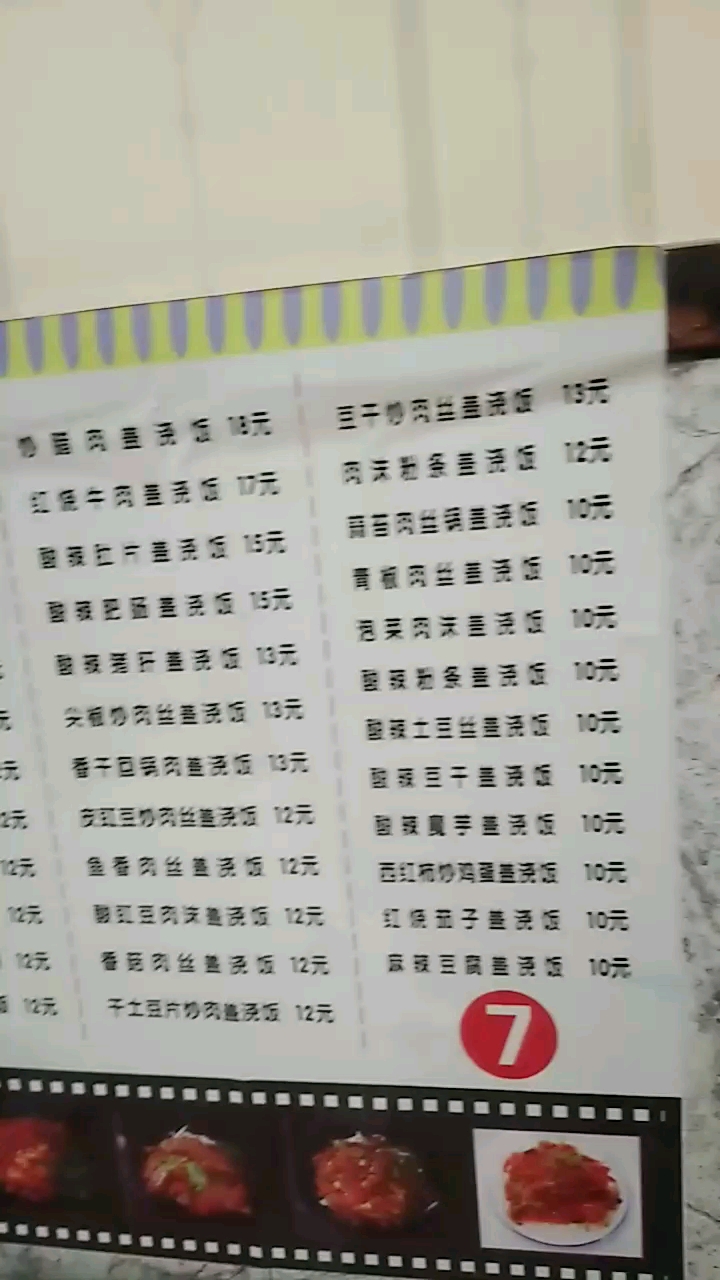 炒腊肉盖浇饭 18元
红烧牛肉盖浇饭 17元
酸辣肚片盖浇饭 15元
酸辣肥肠盖浇饭 15元
酸辣猪肝盖浇饭 13元
尖椒炒肉丝盖浇饭 13元
香干回锅肉盖浇饭 13元
皮豇豆炒肉丝盖浇饭 12元
鱼香肉丝盖浇饭 12元
酸豇豆肉沫盖浇饭 12元
香菇肉丝盖浇饭 12元
干土豆片炒肉盖浇饭 12元
豆干炒肉丝盖浇饭 13元
肉沫粉条盖浇饭 12元
蒜苔肉丝锅盖浇饭 10元
青椒肉丝盖浇饭 10元
泡菜肉沫盖浇饭 10元
酸辣粉条盖浇饭 10元
酸辣土豆丝盖浇饭 10元
酸辣豆干盖浇饭 10元
酸辣魔芋盖浇饭 10元
西红柿炒鸡蛋盖浇饭 10元
红烧茄子盖浇饭 10元
麻辣豆腐盖浇饭 10元
7